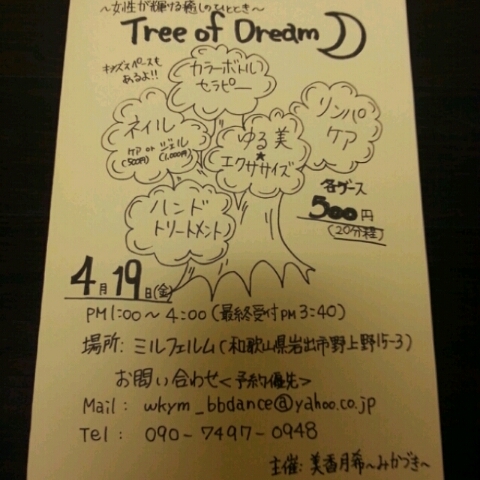 ～女性が輝ける癒しのひととき～
Tree of Dream
キッズスペースも
あるよ!!
カラーボトル
セラピー
ネイル
ケア or ジェル
(500円) (1,000円)
ゆる美★
エクササイズ
リンパ
ケア
ハンド
トリートメント
各ブース
500円
(20分程)
4月19日(金)
PM1:00～4:00(最終受付PM3:40)
場所:ミルフェルム(和歌山県岩出市野上野15-3)
お問い合わせ<予約優先>
Mail: wkym_bbdance@yahoo.co.jp
Tel: 090-7497-0948
主催:美香月希～みかづき～